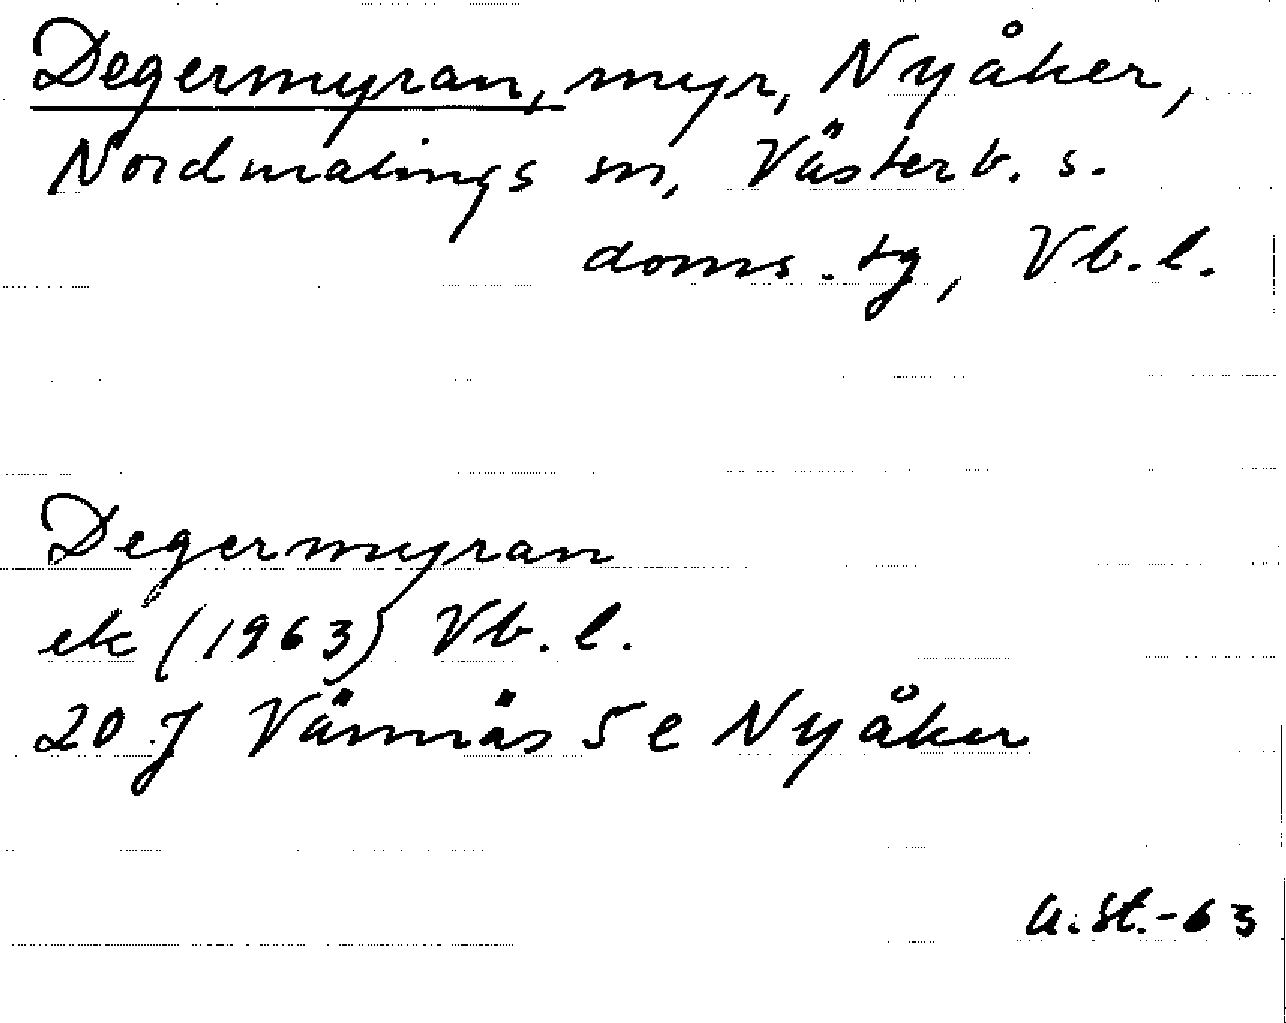 Degermyran, myr, Nyåker,
Nordmalings sn, Västerb. s.
doms. tg, Vb. l.
Degermyran
ek (1963) Vb. l.
20 J Vännäs 5 e Nyåker
A. St. -63